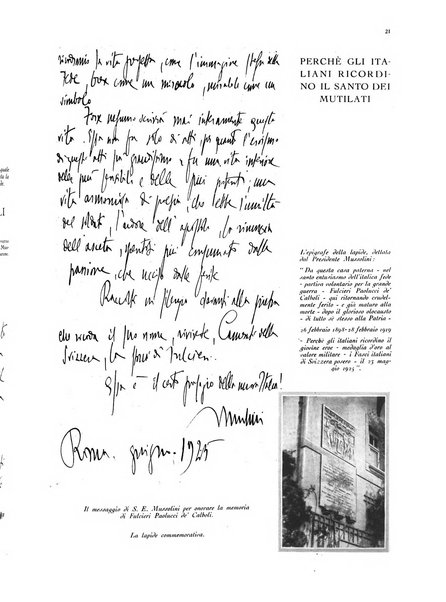 21
rivedremo la vita perfetta, come l'immagine stessa della
Fede, breve come un miracolo, mirabile come un
simbolo
Forse nessuno scriverà mai interamente questa
vita. Essa non fu solo di atti, per quanto l'eroismo
di questi atti sia grandissimo: fu una vita interiore
delle più sensibili e delle più potenti; una
vita armoniosa di poesia, che ebbe l'umiltà
del soldato, l'ardore dell'apostolo, la rinuncia
dell'asceta, spentosi più consumato dalla
passione, che ucciso dalle ferite.
Raccolti in silenzio davanti alla pietra
che ricorda il suo nome, rivivete, Camerati della
Svizzera, la fede di Fulcieri.
Essa è il certo presagio della nuova Italia!
Mussolini
Roma. giugno. 1925
Il messaggio di S. E. Mussolini per onorare la memoria
di Fulcieri Paolucci de' Calboli.
La lapide commemorativa.
PERCHÈ GLI ITA-
LIANI RICORDI-
NO IL SANTO DEI
MUTILATI
L'epigrafe della lapide, dettata
dal Presidente Mussolini:
" Da questa casa paterna - nel
santo entusiasmo dell'italica fede
- partiva volontario per la grande
guerra - Fulcieri Paolucci de'
Calboli - qui ritornando crudel-
mente ferito - e già maturo alla
morte - dopo il glorioso olocausto
- di tutto sè stesso alla Patria -
26 febbraio 1898-28 febbraio 1919
- Perchè gli italiani ricordino il
giovine eroe - medaglia d'oro al
valore militare - i Fasci italiani
di Svizzera posero - il 23 mag-
gio 1925 "